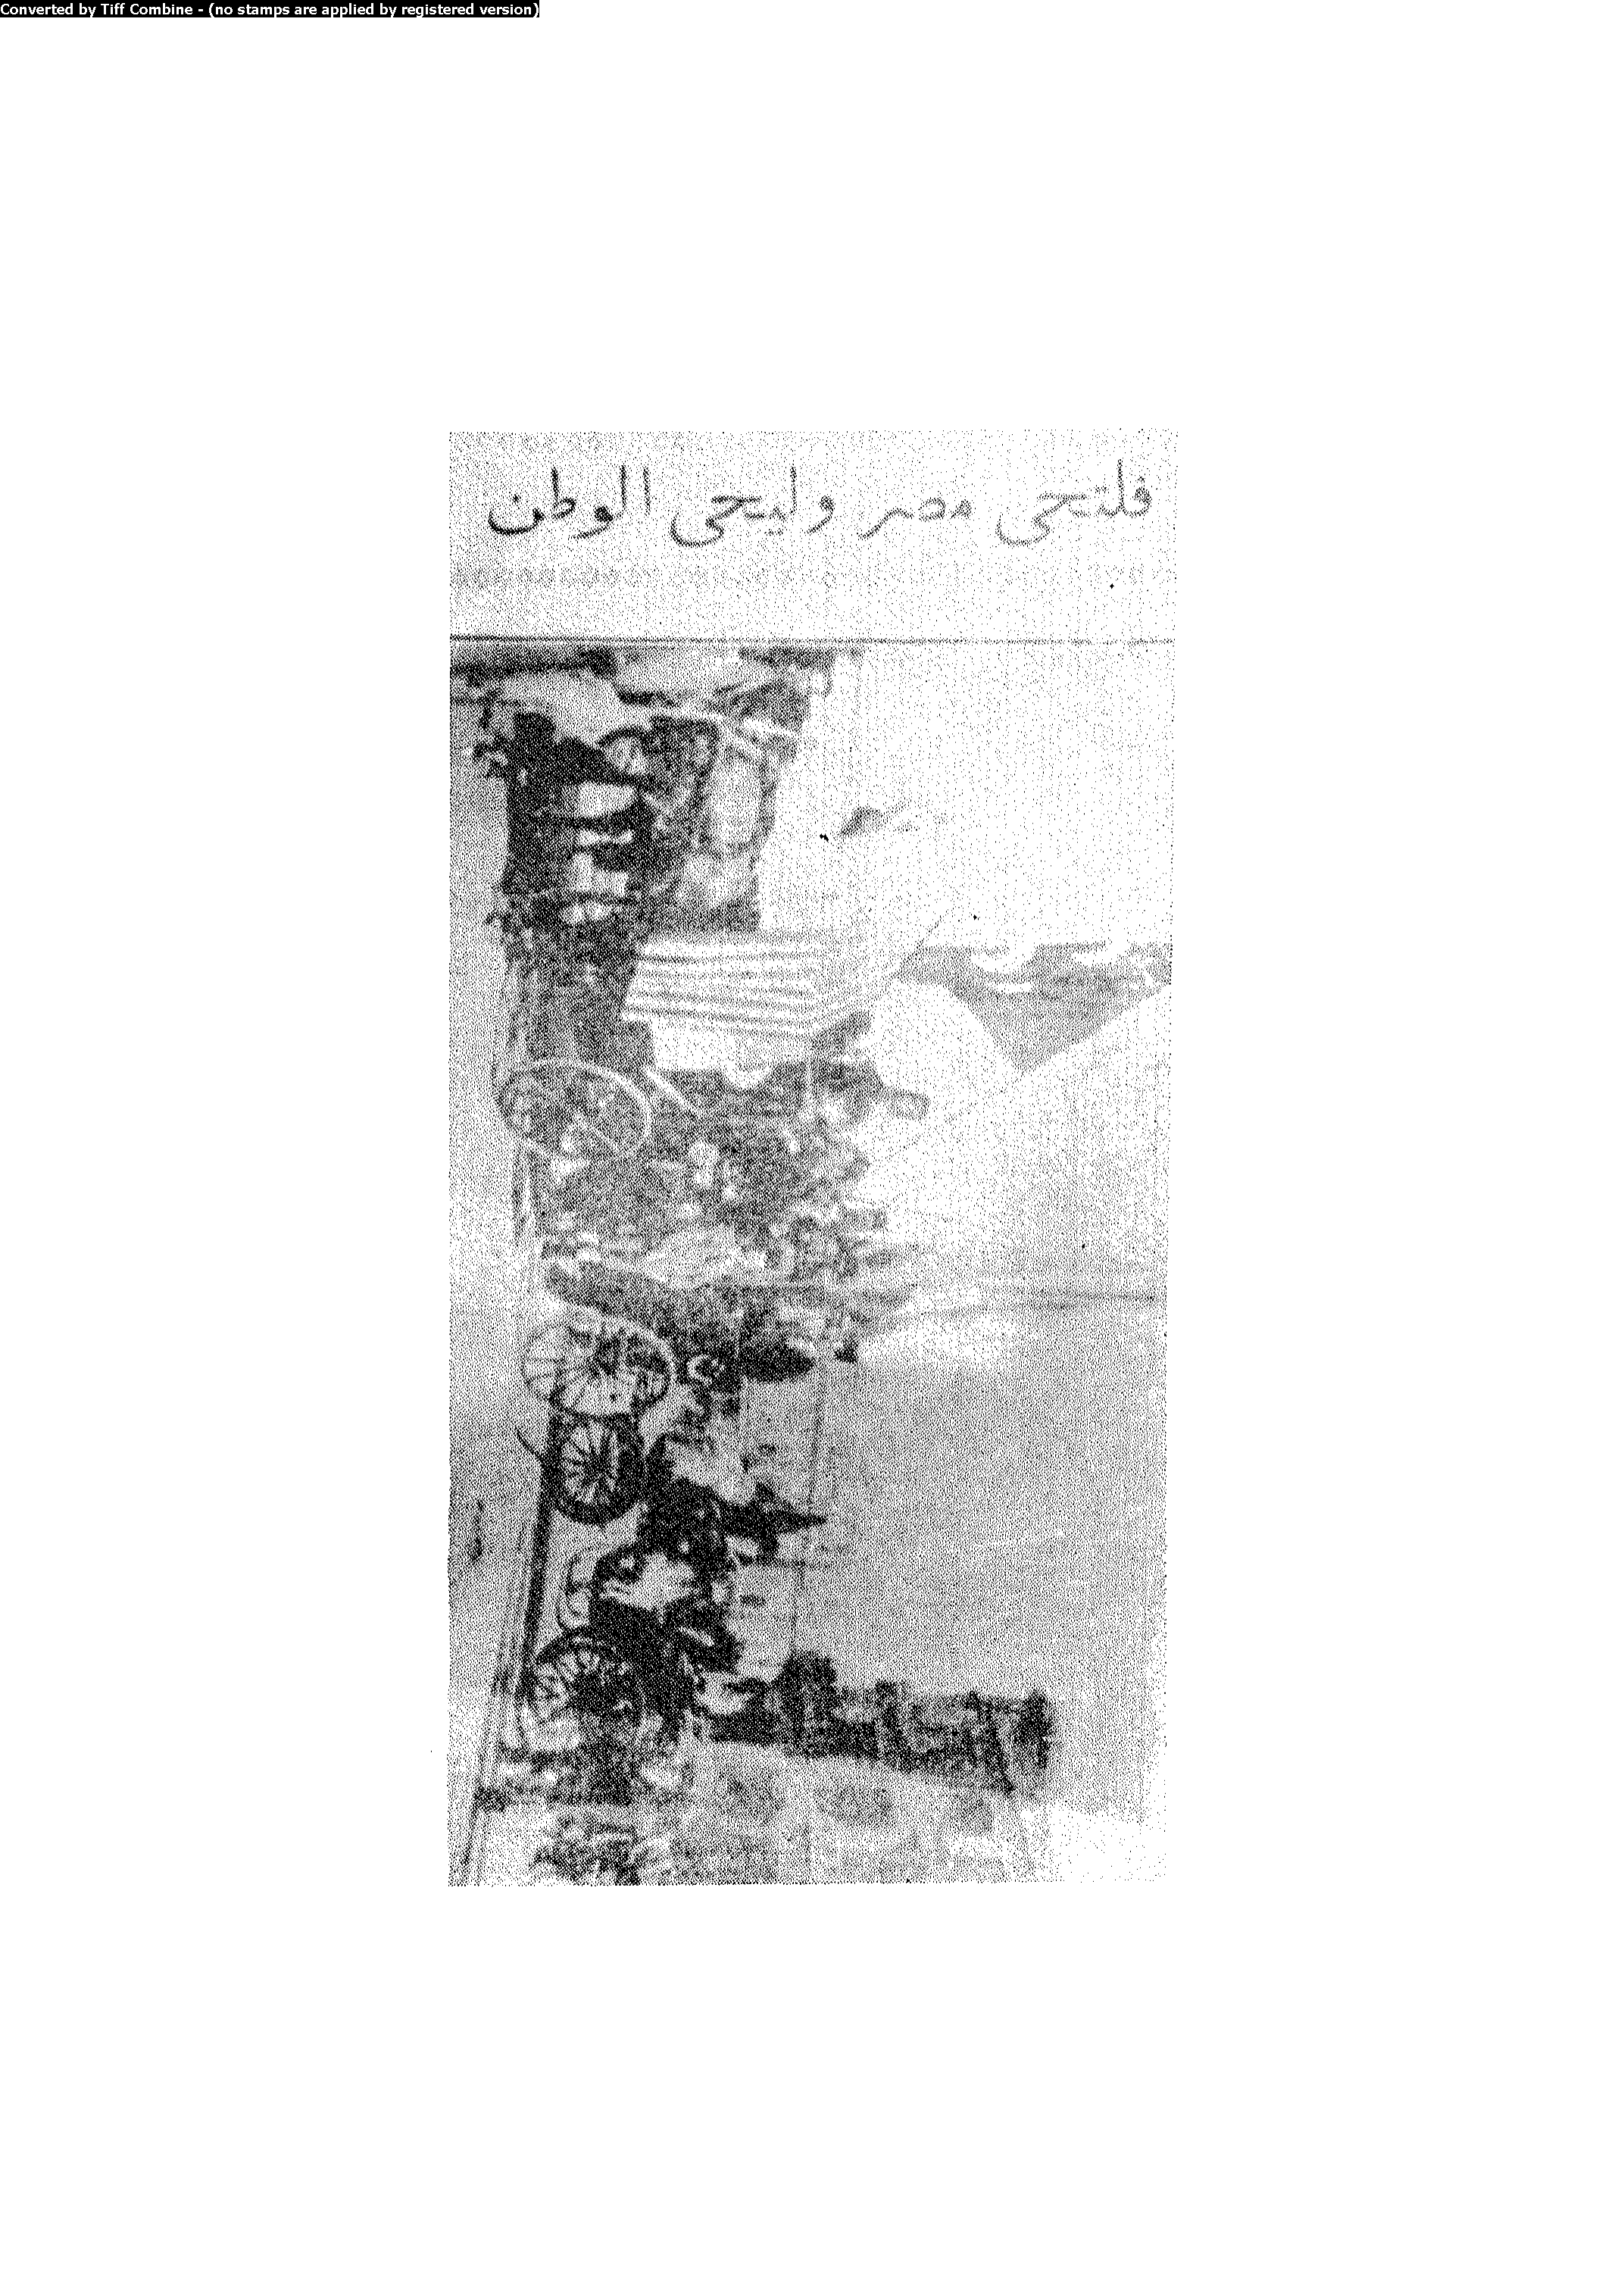 Converted by Tiff Combine - (no stamps are applied by registered version)
فلتحى مصر وليحى الوطن